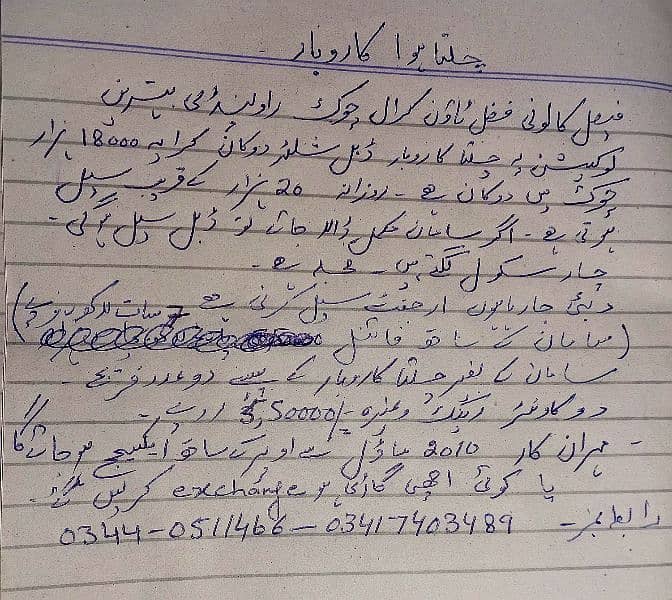 چلتا ہوا کاروبار
فیصل کالونی فضل ٹاؤن کرال چوک راولپنڈی بہترین
لوکیشن پہ چلتا کاروبار ڈبل شٹر دوکان کرایہ 18000 ہزار
چوک میں دوکان ہے - روزانہ 20 ہزار کے قریب سیل
ہوتی ہے - اگر سامان مکمل ڈالا جائے تو ڈبل سیل ہو گی -
چار سکول لگتے ہیں -  ہے -
دبئی جا رہا ہوں ارجنٹ سیل کرنی ہے - سات لاکھ روپے
(سامان کے ساتھ فائنل)
سامان کے بغیر چلتا کاروبار کے سیٹ دو عدد فریج -
دو کاؤنٹر ریک وغیرہ -/5,50000 روپے -
- مہران کار 2010 ماڈل سے اوپر کے ساتھ ایکسچینج ہو جائے گا
یا کوئی اچھی گاڑی ہو exchange کر لیں گے -
رابطہ نمبر - 03417403489 - 0344-0511466